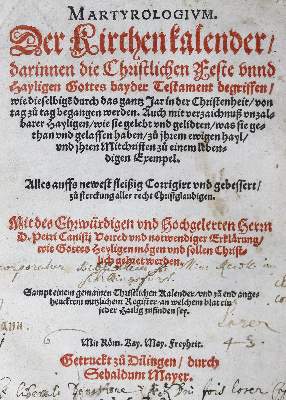 MARTYROLOGIVM.
Der Kirchenkalender/
darinnen die Christlichen Feste vnnd
Hayligen Gottes bayder Testament begriffen/
wie dieselbigē durch das gantz Jar in der Christenheit/ von
tag zů tag begangen werden. Auch mit verzaichnuß vnzal-
barer Hayligen/ wie sie gelebt vnd gelidten/ was sie ge-
than vnd gelassen haben/ zů jhrem ewigen hayl/
vnd jhren Mitchristen zů einem leben-
digen Exempel.
Alles auffs newest fleißig Corrigirt vnd gebessert/
zů sterckung aller recht Christglaubigen.
Mit des Ehrwürdigen vnd Hochgelerten Herrn
D. Petri Canisij Vorred vnd notwendiger Erklärung/
wie Gottes Heyligen mögen vnd sollen Christ-
lich geehret werden.
Sampt einem gemainen Christlichen Kalender/ vnd zů end ange-
hencktem nutzlichem Register an welchem blat ein
jeder Hailig zůfinden sey.
Mit Röm. Kay. May. Freyheit.
4-3.
Getruckt zu Dilingen/ durch
Sebaldum Mayer.